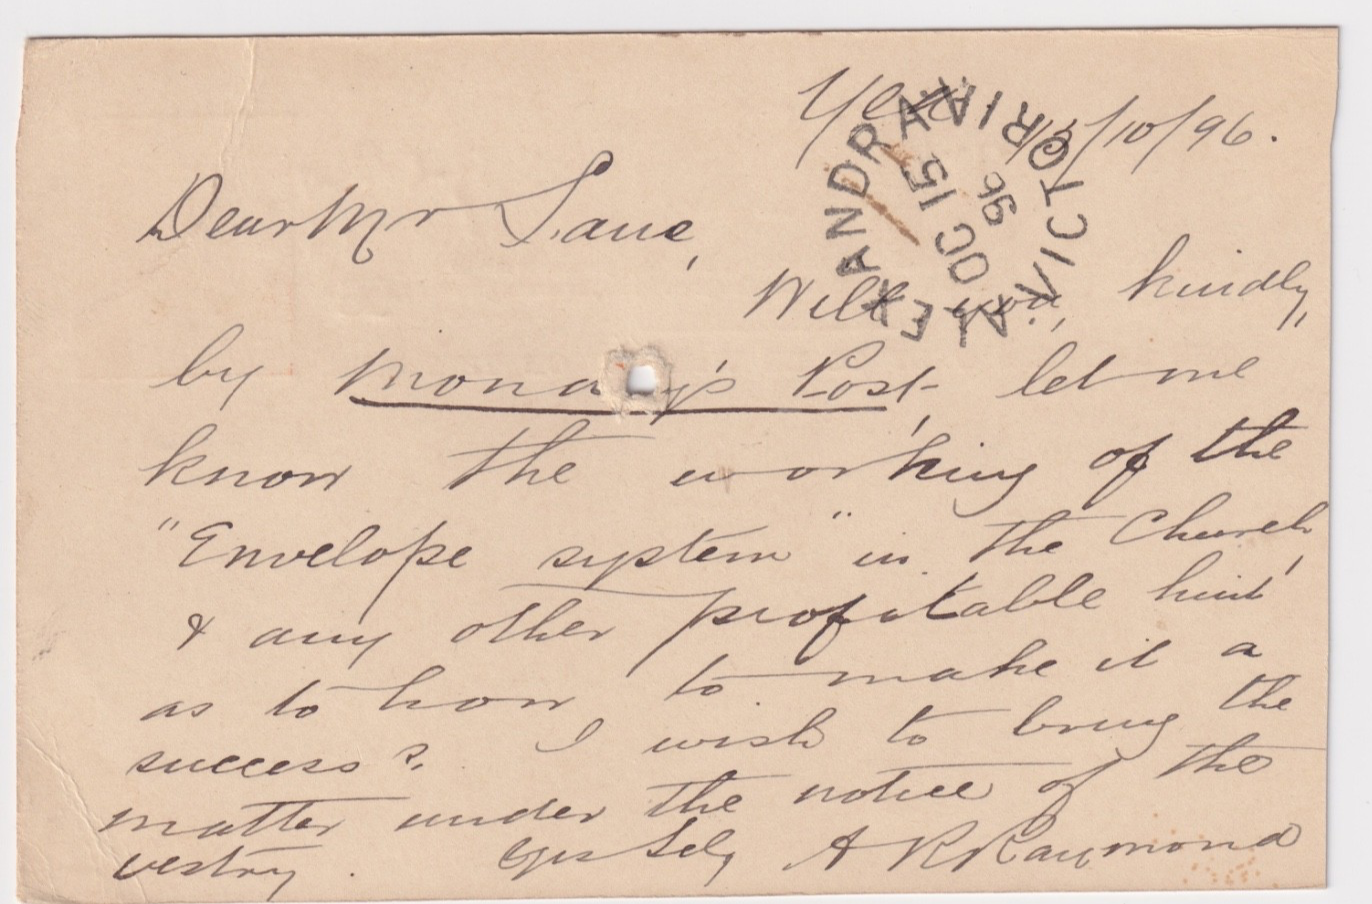 Yea 15/10/96.
Dear Mr Lane,
Will you, kindly,
by Monday's Post, let me
know the working of the
"Envelope system" in the Church,
& any other profitable hint
as to how to make it a
success? I wish to bring the
matter under the notice of the
vestry. Yrs Sely A R Raymond
ALEXANDRA VICTORIA
OC 15
96